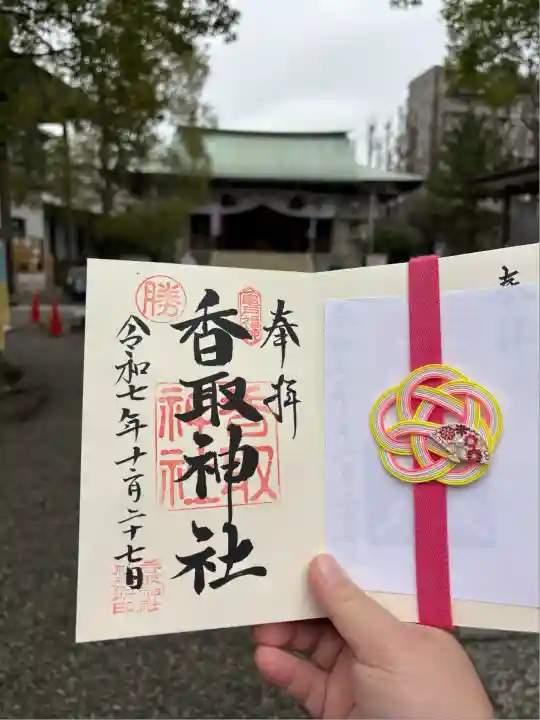 奉拝
香取神社
香取
神社
勝
令和七年十二月二十七日